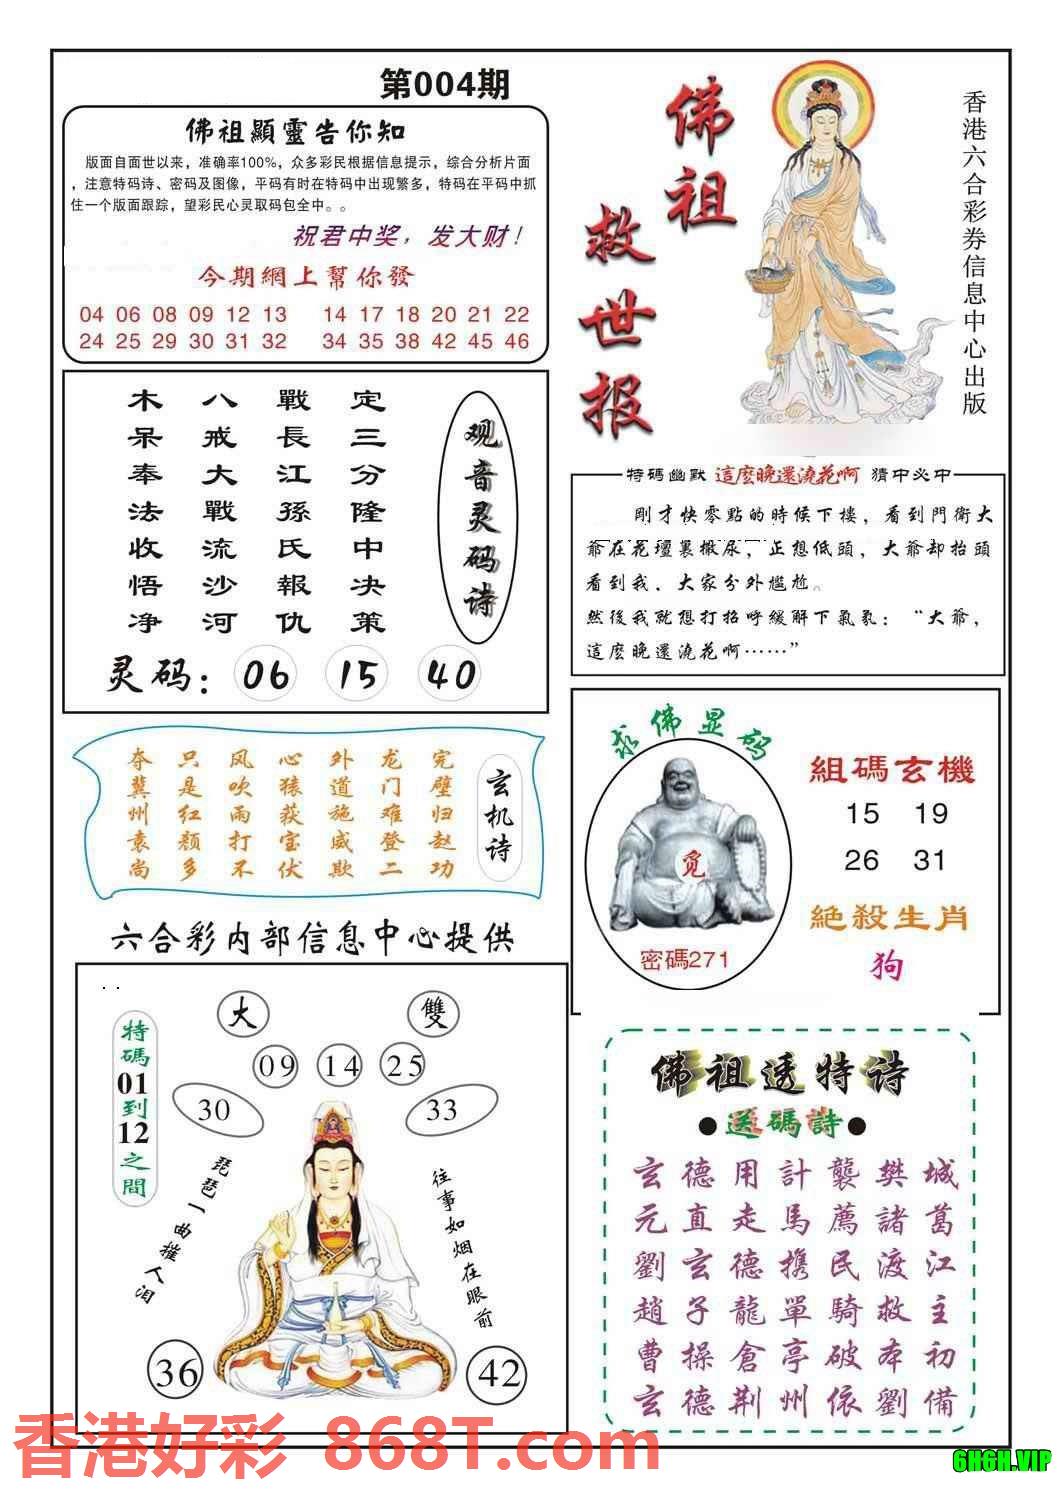 第004期
佛祖顯靈告你知
版面自面世以来，准确率100%，众多彩民根据信息提示，综合分析片面
，注意特码诗、密码及图像，平码有时在特码中出现繁多，特码在平码中抓
住一个版面跟踪，望彩民心灵取码包全中。。
祝君中奖，发大财！
今期網上幫你發
04 06 08 09 12 13 14 17 18 20 21 22
24 25 29 30 31 32 34 35 38 42 45 46
佛祖
救世报
香港六合彩券信息中心出版
观音灵码诗
定三分隆中决策
戰長江孫氏報仇
八戒大戰流沙河
木呆奉法收悟净
灵码：06 15 40
特碼幽默 這麽晚還澆花啊 猜中必中
剛才快零點的時候下樓，看到門衛大
爺在花壇裏撒尿，正想低頭，大爺却抬頭
看到我，大家分外尴尬。
然後我就想打招呼緩解下氣氛：“大爺，
這麽晚還澆花啊……”
玄机诗
完璧归赵功
龙门难登二
外道施威欺
心猿获宝伏
风吹雨打不
只是红颜多
夺冀州袁尚
求佛显码
觅
密碼271
組碼玄機
15 19
26 31
絶殺生肖
狗
六合彩内部信息中心提供
特碼01到12之間
大 雙
09 14 25
30 33
琵琶一曲摧人泪
往事如烟在眼前
36 42
佛祖透特诗
●送碼詩●
玄德用計襲樊城
元直走馬薦諸葛
劉玄德携民渡江
趙子龍單騎救主
曹操倉亭破本初
玄德荆州依劉備
香港好彩 868T.com
6H6H.VIP